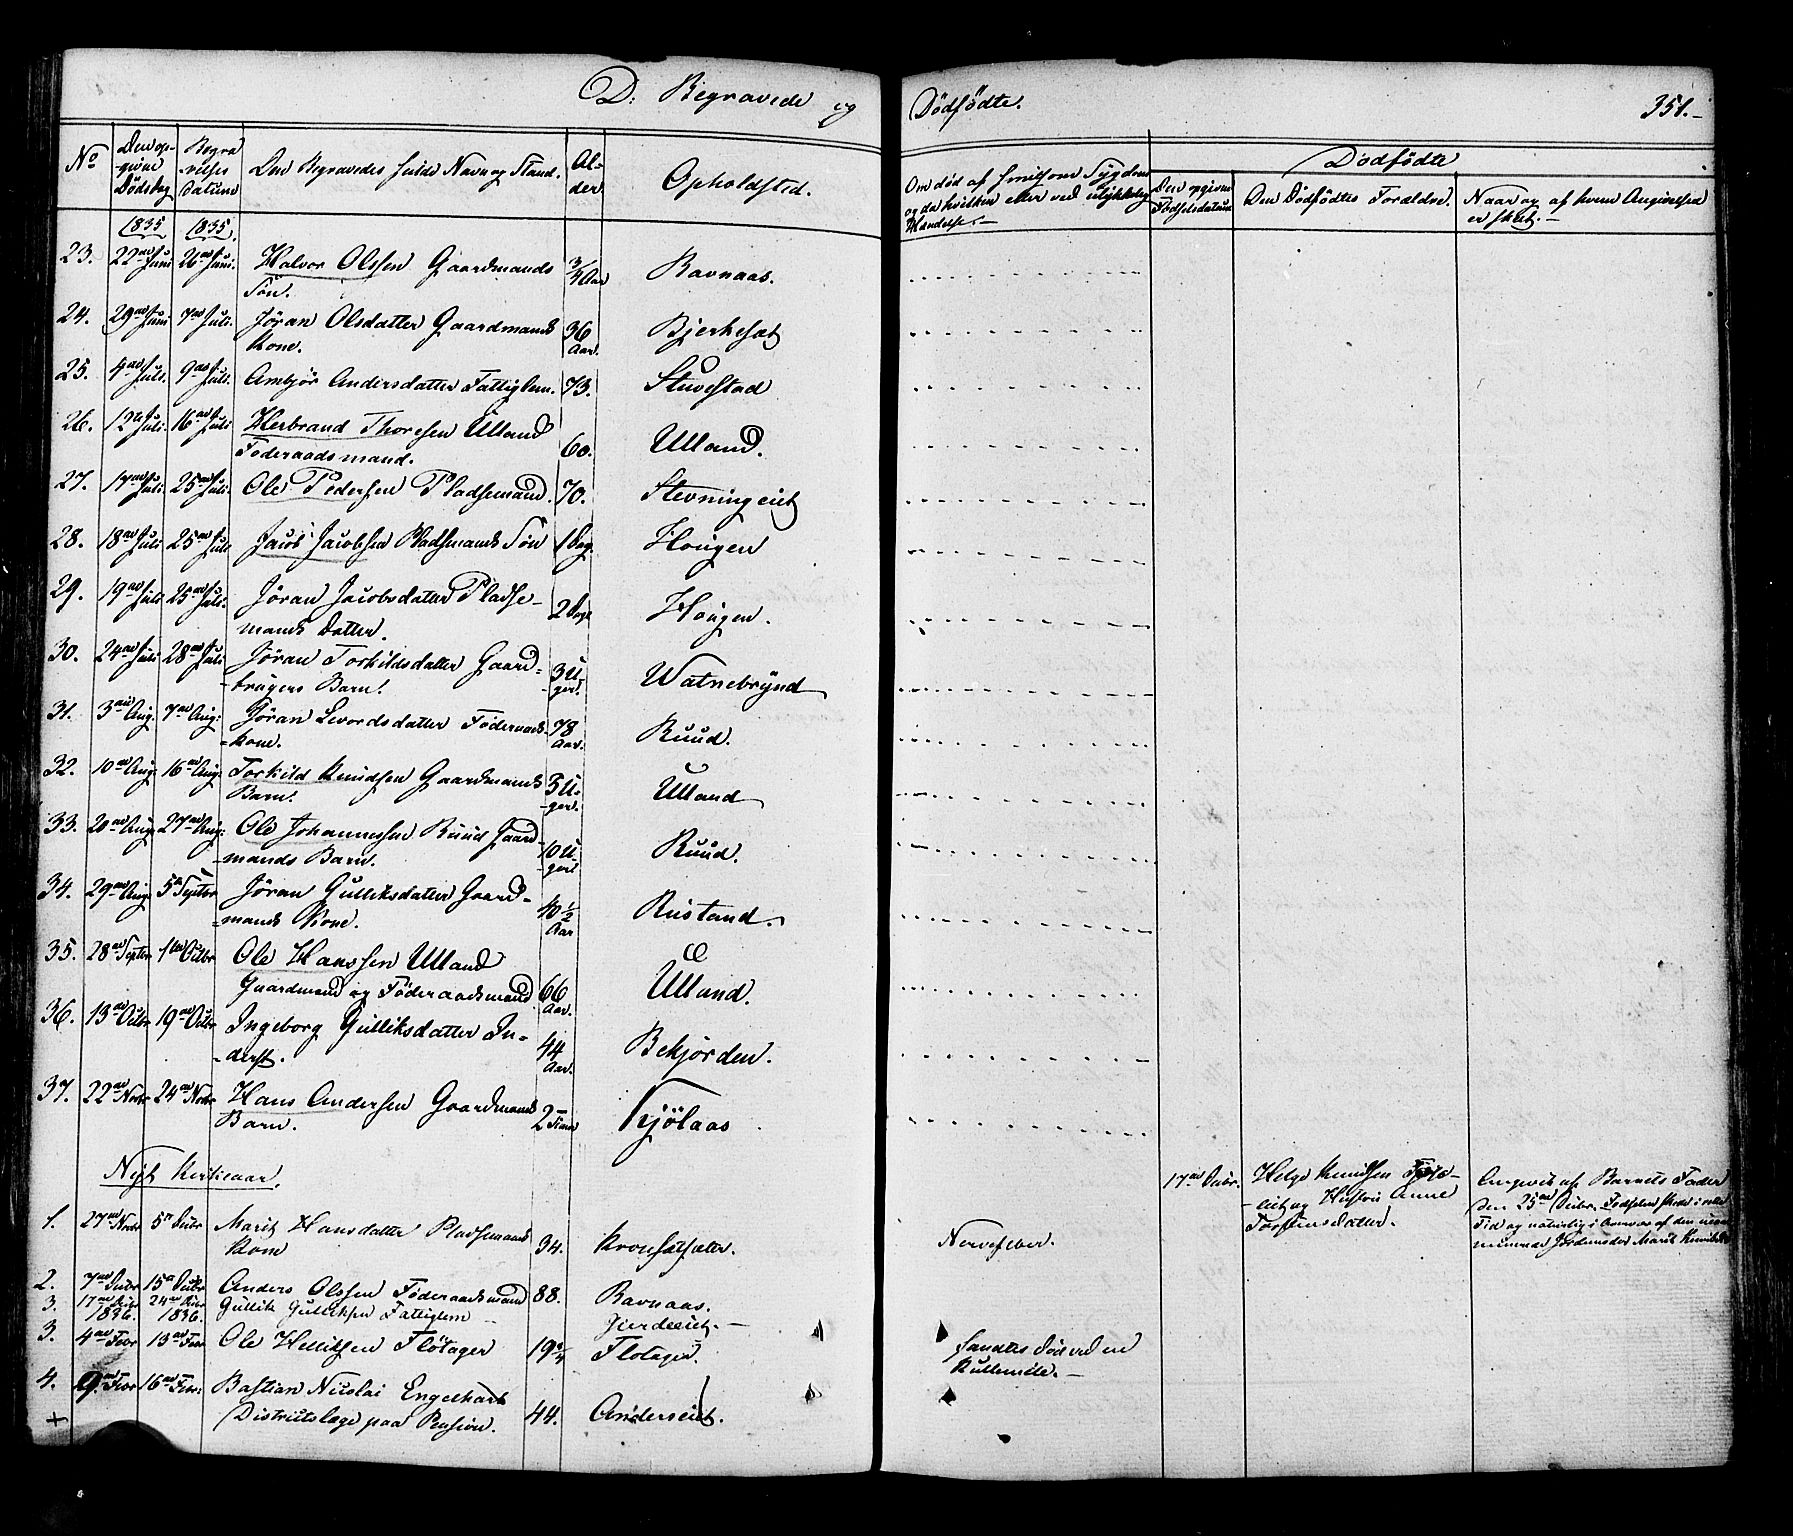 D: Begravede og Dödfödte. 351.
No Den opgivne Dödsdag Begravelses Datum Den Begravedes fulde Navn og Stand. Alder Opholdsted. Om död af smitsom Sygdom og da hvilken eller ved ulykkelig Hændelse.
Dödfödte
Den opgivne Födselsdatum Den Dödfödtes Forældre. Naar og af hvem Angivelsen er skeet.
1835 1835.
23. 22de Juni 26de Juni. Halvor Olssen Gaardmands Sön. 3/4 Aar Ravnaas.
24. 29de Juni 7de Juli. Jöran Olsdatter Gaardmands Kone. 36 Aar. Bjerkesæt
25. 4de Juli. 9de Juli. Ambjör Andersdatter Fattiglem. 73. Stuvestad
26. 12te Juli. 16de Juli Herbrand Thoresen Ulland Föderaadsmand. 60. Ulland.
27. 17de Juli. 25de Juli. Ole Pedersen Pladsemand. 70. Stevningeiet
28. 18de Juli 25de Juli Jacob Jacobsen Pladsmands Sön 1 Dag. Hougen
29. 19de Juli 25de Juli. Jöran Jacobsdatter Pladsemands Datter. 2 Dage Hougen.
30. 24de Juli 28de Juli Jöran Torkildsdatter Gaardbrugers Barn. 3 Uger. Watnebrynd
31. 3die Aug. 7de Aug: Jöran Sevordsdatter Föderaadskone. 78 Aar. Ruud.
32. 10de Aug. 16de Aug. Torkild Knudsen Gaardmands Barn. 3 Uger. Ulland
33. 20de Aug. 27de Aug: Ole Johannessen Ruud Gaardmands Barn. 10 Uger Ruud.
34. 29de Aug. 5te Septbr Jöran Gulliksdatter Gaardmands Kone. 40 1/2 Aar Rustand.
35. 28de Septbr 1ste Octbr Ole Hanssen Ulland Gaardmand og Föderaadsmand 66 Aar. Ulland.
36. 13de Octbr 19de Octbr Ingeborg Gulliksdatter Inderst. 44 Aar. Bekjorden.
37. 22de Novbr 24de Novbr Hans Andersen Gaardmands Barn. 2 Timer Kjölaas
Nyt Kirkeaar.
17de Decbr. Helge Knudsen og Hustru Anne Torstensdatter. Angivet af Barnets Fader den 25de Decbr. Födselen skede i rette Tid og naturlig i Overvær af Jordemoder Marit
1. 27de Novbr 5te Decbr Marit Hansdatter Pladsemands Kone 34. Kronsætsæter. Nervefeber.
2. 7de Decbr 15de Decbr Anders Olssen Föderaadsmand 88. Ravnaas.
3. 17de Decbr 24de Decbr Gullik Gulliksen Fattiglem
1836. 1836.
3. 4de Febr 13de Febr Ole Helliksen Flötager 19 3/4 Flotager. Kullemile.
4. 9de Febr 16de Febr: Bastian Nicolai Engelhart Districtslæge paa Pension. 44. Anderseiet.